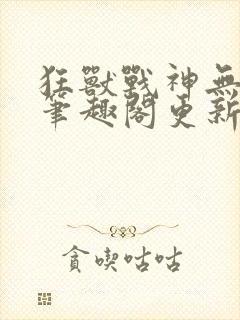 狂獸戰神無
筆趣閣更新
貪喫咕咕